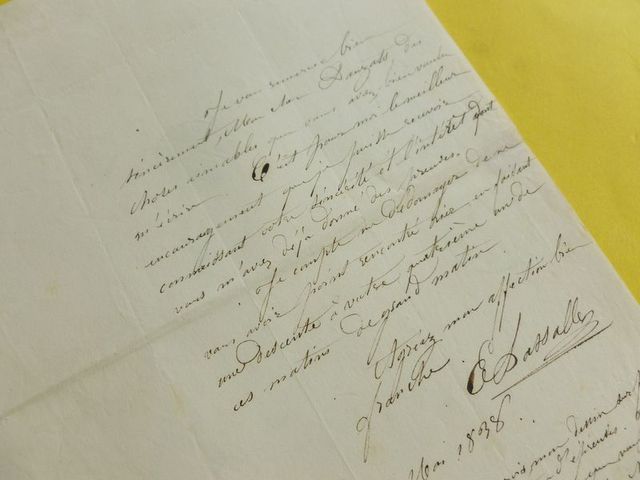 Je vous remercie bien
sincèrement, Mon cher Dauzats, des
choses aimables que vous avez bien voulu
m'écrire. C'est pour moi le meilleur
encouragement que je puisse recevoir
connaissant votre sincérité et l'intérêt dont
vous m'avez déjà donné des preuves.
Je compte me dédomager de ne
vous avoir point rencontré hier en faisant
une descente à votre un de
ces matins de grand matin.
Agréez mon affection bien
franche.
E Lassalle
Mai 1838.
mon dessin sur